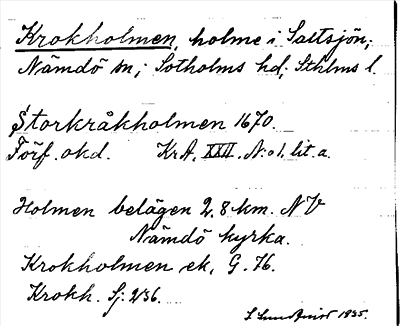 Krokholmen, holme i Saltsjön;
Nämdö sn; Sotholms hd; Sthlms l.
Storkråkholmen 1670.
Förf. okd. KrA. XXII. N:o 1. lit. a.
Holmen belägen 2,8 km. NV
Nämdö kyrka.
Krokholmen ek. G. 76.
Krokh. Sj: 236.
S. Sundqvist 1935.